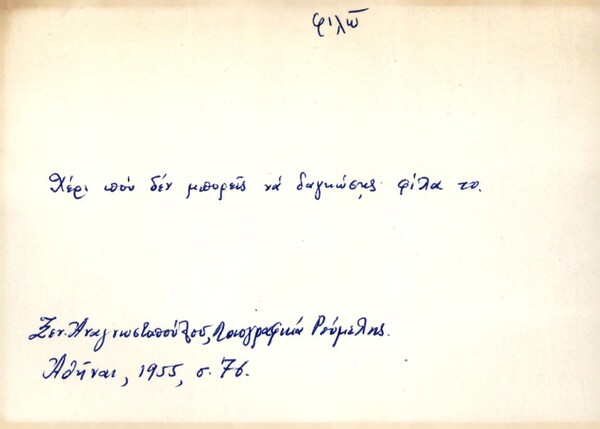 φιλῶ
Χέρι ποὺ δέν μπορεῖς νά δαγκώσῃς φίλα το.
Ξεν. Ἀναγνωστοπούλου, Λαογραφικά Ρούμελης.
Ἀθῆναι, 1955, σ. 76.